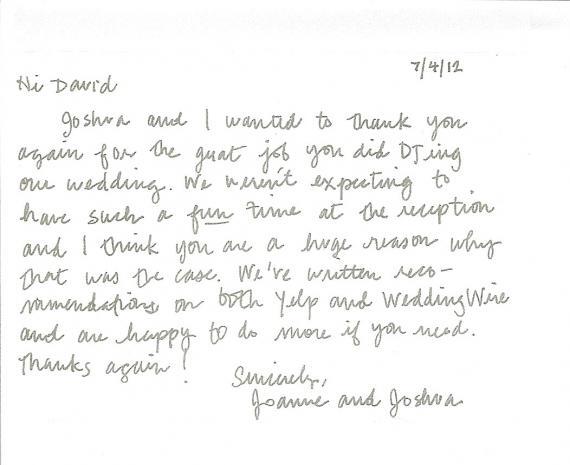 7/4/12
Hi David
Joshua and I wanted to thank you
again for the great job you did DJing
our wedding. We weren't expecting to
have such a fun time at the reception
and I think you are a huge reason why
that was the case. We've written reco-
mmendations on both Yelp and WeddingWire
and are happy to do more if you need.
Thanks again!
Sincerely,
Joanne and Joshua